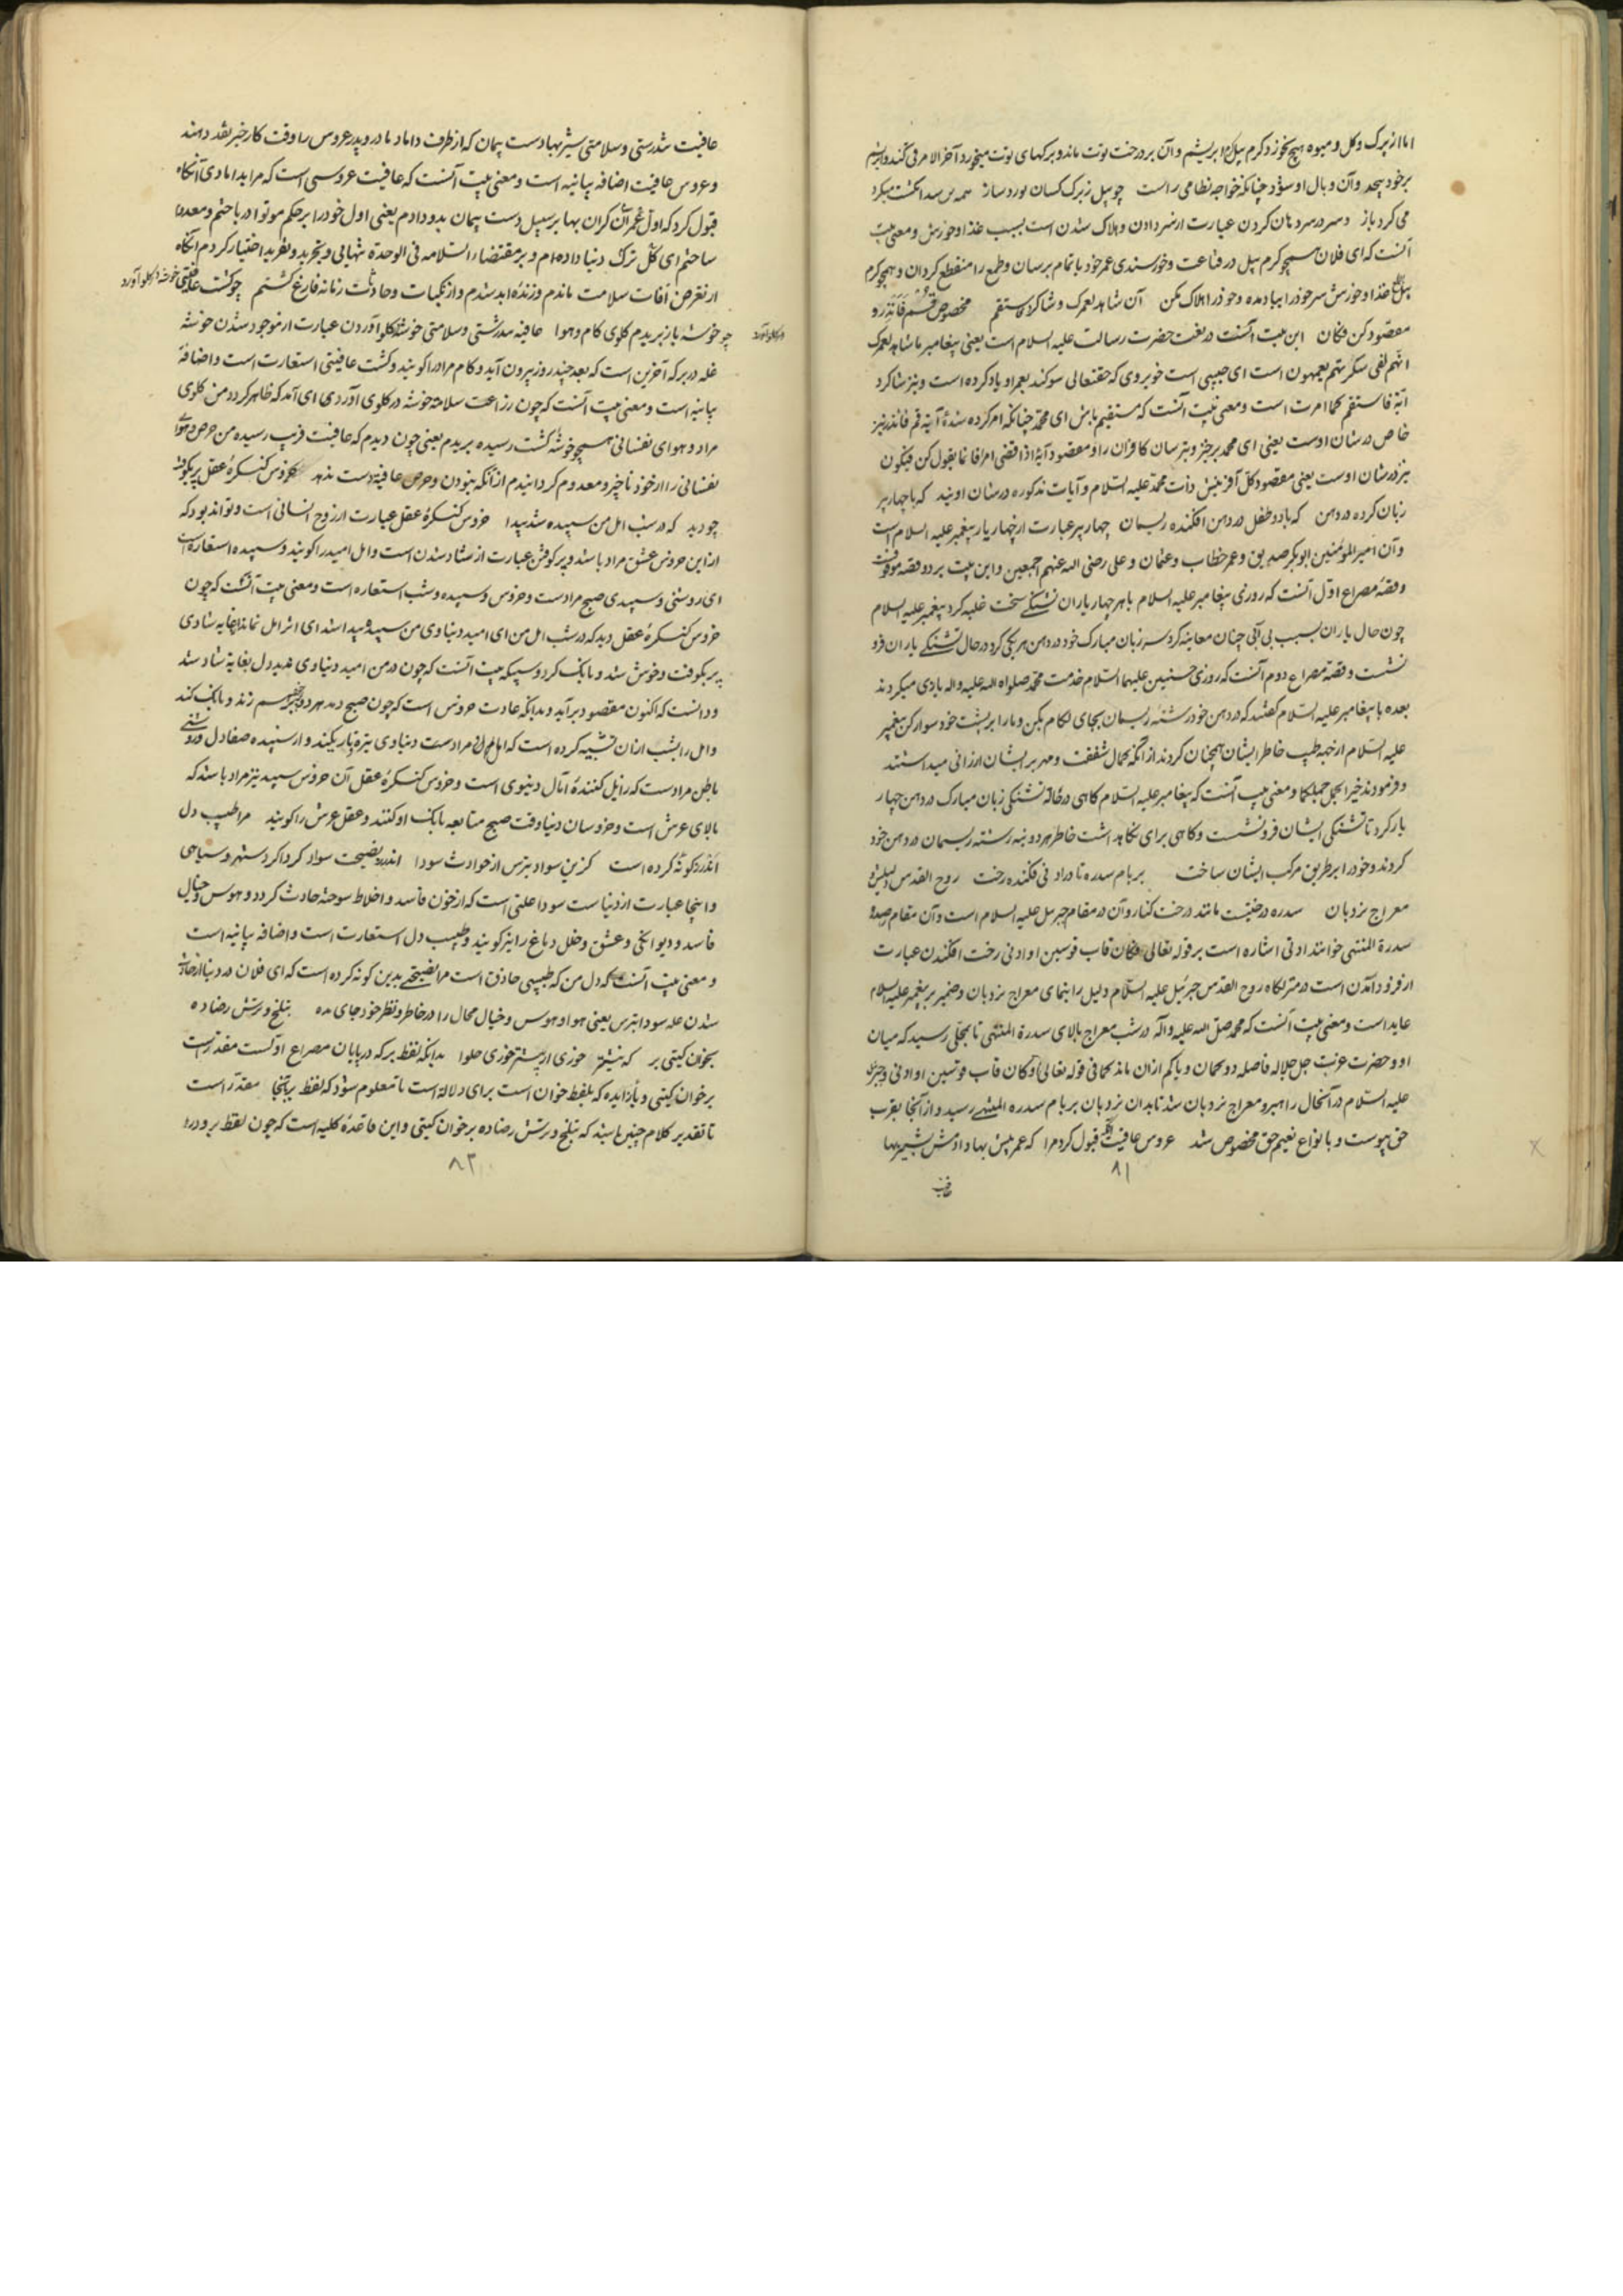 اما از برک و کل و میوه هیچ نخورد کرم پیله ابریشم و آن بر درخت توت ماند و برکهای توت میخورد آخر الامر قی کند و ابریشم
بر خود پیچد و آن وبال او شود چنانکه خواجه نظامی راست چو پیل ز برک کسان بورد ساز همه بر سد انکشت میکرد
می کرد باز و سر در سر دهان کردن عبارت از سر دادن و هلاک شدن است بسبب غذا و خورش و معنی بیت
آنست که ای فلان همچو کرم پیل در قناعت و خورسندی عمر خود باتمام برسان و طمع را منقطع کردان و همچو کرم
پیله غذا و خورش سر خود را بباد مده و خود را هلاک مکن آن شاهد لعمرک و شاکرد فاستقم مخصوص قم فانذر و
مقصود کن فکان این بیت در نعت حضرت رسالت علیه السلام است یعنی پیغامبر ما شاهد لعمرک
انهم لفی سکرتهم یعمهون است ای حبیبی است خوبروی که حقتعالی سوکند بعمر او یاد کرده است و نیز شاکرد
آیة فاستقم کما امرت است و معنی بیت آنست که مستقیم باش ای محمد چنانکه امر کرده شدۀ آیة قم فانذر نیز
خاص در شان اوست یعنی ای محمد برخیز و بترسان کافران را و مقصود آیة اذا قضی امرا فانما یقول کن فیکون
نیز در شان اوست یعنی مقصود کل آفرینش ذات محمد علیه السلام و آیات مذکوره در شان اویند که با چهار پر
زبان کرده در دهن که با دو طفل در دهن افکنده ریسمان چهار پر عبارت از چهار یار پیغمبر علیه السلام است
و آن امیر المؤمنین ابوبکر صدیق و عمر خطاب و عثمان و علی رضی الله عنهم اجمعین و این بیت بر دو قصه موقوفست
و قصۀ مصراع اول آنست که روزی پیغامبر علیه السلام با هر چهار یاران تشنکی سخت غلبه کرد پیغمبر علیه السلام
چون حال یاران بسبب بی آبی چنان معاینه کرد سر زبان مبارک خود در دهن هر یکی کرد در حال تشنکی یاران فرو
نشست و قصۀ مصراع دوم آنست که روزی حسنین علیهما السلام خدمت محمد صلواة الله علیه و اله بازی میکردند
بعده با پیغامبر علیه السلام کفتند که در دهن خود رشته ریسمان بجای لکام بکن و ما را بر پشت خود سوار کن پیغمبر
علیه السلام از جهة طیب خاطر ایشان همچنان کردند از آنکه کمال شفقت و مهر بر ایشان ارزانی میداشتند
و فرمودند خیر الجمل جملکما و معنی بیت آنست که پیغامبر علیه السلام کاهی در حالة تشنکی زبان مبارک در دهن چهار
یار کرد تا تشنکی ایشان فرو نشست و کاهی برای نکاهداشت خاطر هر دو نبیه رشته ریسمان در دهن خود
کردند و خود را بر طریق مرکب ایشان ساخت بر بام سدره تا در ادنی فکنده رخت روح القدس دلیلش و
معراج نردبان سدره درختیست مانند درخت کنار و آن در مقام جبرئیل علیه السلام است و آن مقام را
سدرة المنتهی خوانند ادنی اشاره است بر قوله تعالی فکان قاب قوسین او ادنی رخت افکندن عبارت
از فرود آمدن است در منزلکاه روح القدس جبرئیل علیه السلام دلیل راهنمای معراج نردبان و ضمیر بر پیغمبر علیه السلام
عاید است و معنی بیت آنست که محمد صلی الله علیه و آله در شب معراج بالای سدرة المنتهی تا بمحلی رسید که میان
او و حضرت عزت جل جلاله فاصله دو کمان و یا کم ازان ماند کما فی قوله تعالی فکان قاب قوسین او ادنی و جبرئیل
علیه السلام در آنحال راهبر و معراج نردبان شد تا بدان نردبان بر بام سدرة المنتهی رسید و از آنجا بقرب
حق پیوست و بانواع نعیم حق مخصوص شد عروس عافیت آنکه قبول کرد مرا که عمر بیش بها دادمش بشیربها
۸۱
عافیت تندرستی و سلامتی شیربها دست پیمان که از طرف داماد مادر و پدر عروس را وقت کار خیر نقد دهند
و عروس عافیت اضافه بیانیه است و معنی بیت آنست که عافیت عروسی است که مرا بدامادی آنکاه
قبول کرد که اول عمر کران بها بر سبیل دست پیمان بدو دادم یعنی اول خود را بر حکم موتوا در باختم و معدوم
ساختم ای کل ترک دنیا داده ام و بر مقتضاء السلامه فی الوحدة تنهائی و تجرید و تفرید اختیار کردم آنکاه
از تعرض آفات سلامت ماندم و زندۀ ابد شدم و از نکبات و حادثات زمانه فارغ کشتم چو کشت عافیتم خوشه در کلو آورد
چو خوشه باز بریدم کلوی کام و هوا عافیة تندرستی و سلامتی خوشه در کلو آوردن عبارت از موجود شدن خوشه
غله در برکه آخرین است که بعد چند روز بیرون آید و کام مراد را کویند و کشت عافیتی استعارت است و اضافۀ
بیانیه است و معنی بیت آنست که چون زراعت سلامة خوشه در کلوی آوردی ای آمد که ظاهر کردد من کلوی
مراد و هوای نفسانی همچو خوشۀ کشت رسیده بریدم یعنی چون دیدم که عافیت قریب رسیده من حرص و هوای
نفسانی را از خود ناچیز و معدوم کردانیدم از آنکه بنبودن و حرص عافیة دست ندهد خروس کنکرۀ عقل پر بکوفت
چو دید که در شب امل من سپیده شد پیدا خروس کنکرۀ عقل عبارت از روح انسانی است و تواند بود که
از این خروس عشق مراد باشد و پر کوفتن عبارت از شاد شدن است و امل امید را کویند و سپیده استعاره است
ای روشنی و سپیدی صبح مرادست و خروس و سپیده و شب استعاره است و معنی بیت آنست که چون
خروس کنکرۀ عقل دید که در شب امل من ای امید دنیاوی من سپیده پیدا شد ای اثر امل نماند بغایه شادی
پر بکوفت و خوش شد و بانک کرد و سپیکه بیت آنست که چون در من امید دنیاوی ندید دل بغایة شاد شد
و دانست که اکنون مقصود برآید و بدانکه عادت خروس است که چون صبح دمد هر دو پر بهم زند و بانک کند
و امل را بشب ازان تشبیه کرده است که امل مرادست دنیاوی تیره و تاریکند و از سپیده صفا دل و روشنی
باطن مرادست که زایل کنندۀ آمال دنیوی است و خروس کنکرۀ عقل آن خروس سپید نیز مراد باشد که
بالای عرش است و خروسان دنیا وقت صبح متابعه بانک او کنند و عقل عرش را کویند مرا طبیب دل
اندر کونه کرده است کزین سواد بترس از حوادث سودا اندرز نصیحت سواد کرداکرد شهر و سیاهی
و اینجا عبارت از دنیا ست سودا علتی است که از خون فاسد و اخلاط سوخته حادث کردد و هوس و خیال
فاسد و دیوانکی و عشق و خلل دماغ را نیز کویند و طبیب دل استعارت است و اضافه بیانیه است
و معنی بیت آنست که دل من که طبیبی حاذق است مرا نصیحتی بدین کونه کرده است که ای فلان در دنیا از حادث
شدن علة سودا بترس یعنی هوا و هوس و خیال محال را در خاطر و نظر خود جای مده بتلخ و ترش رضا ده
بخوان کیتی بر که نیشتر خوری ار بیشتر خوری حلوا بدانکه لفظ بر که در پایان مصراع اوّلست مقدرست
بر خوان کیتی و با زایده که بلفظ خوان است برای دلالة است تا معلوم شود که لفظ بر اینجا مقدّر است
تا تقدیر کلام چنین باشد که بتلخ و ترش رضا ده بر خوان کیتی و این قاعدۀ کلیه است که چون لفظ بر و درو
۸۲